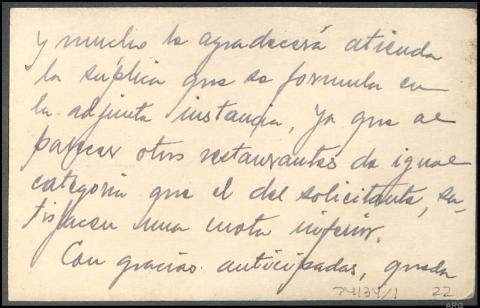 y mucho le agradecerá atienda
la súplica que se formula en
la adjunta instancia, ya que al
parecer otros restaurantes de igual
categoría que el del solicitante, sa-
tisfacen una cuota inferior.
Con gracias anticipadas, queda
74134/1 22
ARG